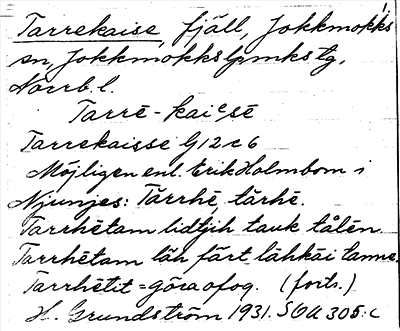 1.
Tarrekaise, fjäll, Jokkmokks
sn, Jokkmokks lpmks tg,
Norrb. l.
Tarrē-kaiᵉsē
Tarrekaisse G 12 c 6
Möjligen enl. Erik Holmbom i
Njunjes: Tārrhē, tārhē.
Tarrhētam lidtjih tauk tålēn.
Tarrhētam läh färt lähkāi tanne.
Tarrhētit = göra ofog. (forts.)
H. Grundström 1931. SOA 305:c